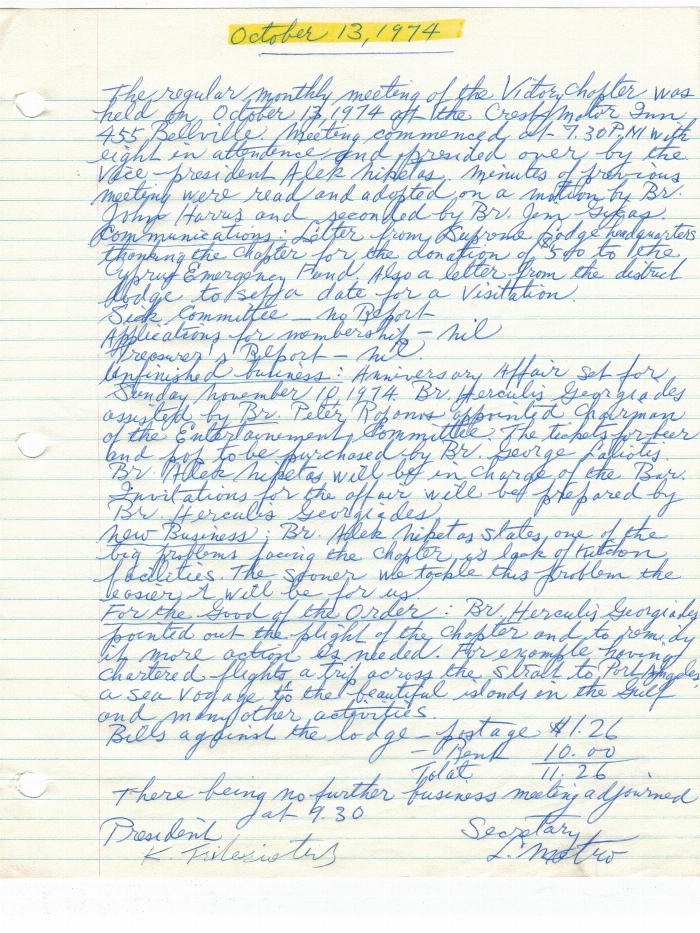 October 13, 1974
The regular monthly meeting of the Victory Chapter was
held on October 13, 1974 at the Crest Motor Inn
455 Bellville. Meeting commenced at 7.30 P.M with
eight in attendence and presided over by the
Vice-president Alek Nipetas. minutes of previous
meeting were read and adopted on a motion by Br.
John Harris and seconded by Br. Jim Gigas.
Communications: Letter from Supreme Lodge headquarters
thanking the Chapter for the donation of $500 to the
Cyprus Emergency Fund. Also a letter from the district
Lodge to set a date for a Visitation.
Sick Committee - no Report
Applications for membership - nil
Treasurer's Report - nil.
Unfinished business: Anniversary Affair set for
Sunday november 10, 1974. Br. Herculis Georgiades
assisted by Br. Peter appointed Chairman
of the Entertainement Committee. The tickets for beer
and pop to be purchased by Br. George Laliotis.
Br. Alek Nipetas will be in charge of the Bar.
Invitations for the affair will be prepared by
Br. Herculis Georgiades
new Business: Br. Alek Nipetas states, one of the
big problems facing the Chapter is lack of Kitchen
facilities. The sooner we tackle this problem the
easier it will be for us
For the Good of the Order: Br. Herculis Georgiades
pointed out the plight of the chapter and to remidy
it more action is needed. For example having
chartered flights, a trip across the strait to Port Angeles
a sea Voyage to the beautiful islands in the Gulf
and many other activities.
Bills against the lodge - postage $1.26
- Rent 10.00
Total 11.26
There being no further business meeting adjourned
at 9.30
President Secretary
K. L. Metro